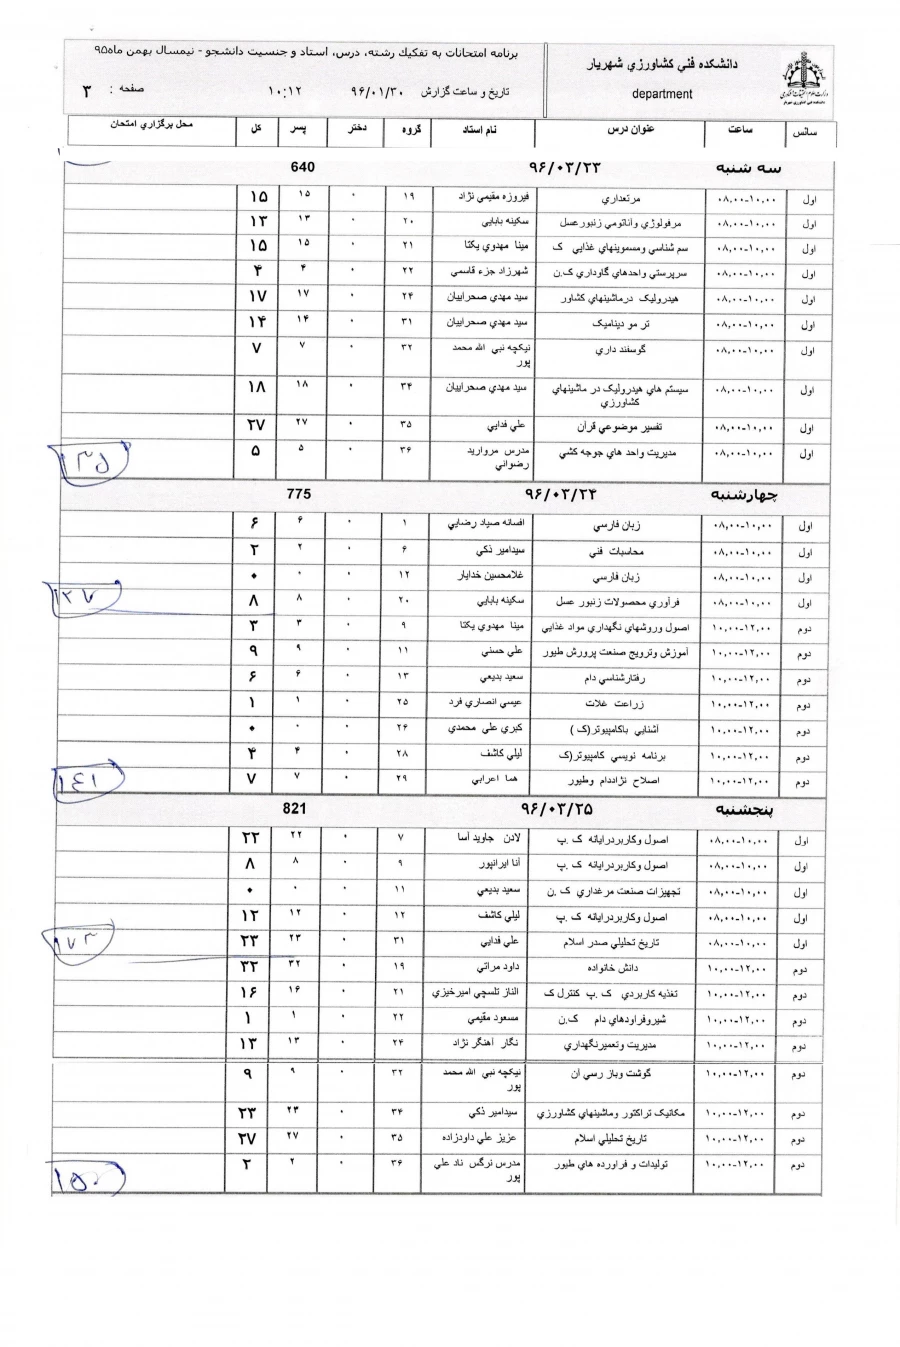 برنامه امتحانات به تفکیك رشته، درس، استاد و جنسیت دانشجو - نیمسال بهمن ماه۹۵
دانشکده فني کشاورزي شهریار
تاریخ و ساعت گزارش ۹۶/۰۱/۳۰ ۱۰:۱۲ صفحه : ۳
department
سانس ساعت عنوان درس نام استاد گروه دختر پسر کل محل برگزاري امتحان
سه شنبه ۹۶/۰۳/۲۳ 640
اول ۰۸,۰۰-۱۰,۰۰ مرتعداري فیروزه مقیمي نژاد ۱۹ ۰ ۱۵ ۱۵
اول ۰۸,۰۰-۱۰,۰۰ مرفولوژي وآناتومي زنبورعسل سکینه بابایي ۲۰ ۰ ۱۳ ۱۳
اول ۰۸,۰۰-۱۰,۰۰ سم شناسي ومسمومینهاي غذایي ک مینا مهدوي یکتا ۲۱ ۰ ۱۵ ۱۵
اول ۰۸,۰۰-۱۰,۰۰ سرپرستي واحدهاي گاوداري ک.ن شهرزاد جزء قاسمي ۲۲ ۰ ۴ ۴
اول ۰۸,۰۰-۱۰,۰۰ هیدرولیک درماشینهاي کشاور سید مهدي صحراییان ۲۴ ۰ ۱۷ ۱۷
اول ۰۸,۰۰-۱۰,۰۰ تر مو دینامیک سید مهدي صحراییان ۳۱ ۰ ۱۴ ۱۴
اول ۰۸,۰۰-۱۰,۰۰ گوسفند داري نیکچه نبي الله محمد ۳۲ ۰ ۷ ۷
پور
اول ۰۸,۰۰-۱۰,۰۰ سیستم هاي هیدرولیک در ماشینهاي سید مهدي صحراییان ۳۴ ۰ ۱۸ ۱۸
کشاورزي
اول ۰۸,۰۰-۱۰,۰۰ تفسیر موضوعي قرآن علي فدایي ۳۵ ۰ ۲۷ ۲۷
اول ۰۸,۰۰-۱۰,۰۰ مدیریت واحد هاي جوجه کشي مدرس مروارید ۳۶ ۰ ۵ ۵
رضواني
۱۳۵
چهارشنبه ۹۶/۰۳/۲۴ 775
اول ۰۸,۰۰-۱۰,۰۰ زبان فارسي افسانه صیاد رضایي ۱ ۰ ۶ ۶
اول ۰۸,۰۰-۱۰,۰۰ محاسبات فني سیدامیر ذکي ۶ ۰ ۲ ۲
اول ۰۸,۰۰-۱۰,۰۰ زبان فارسي غلامحسین خدایار ۱۲ ۰ ۰ ۰
اول ۰۸,۰۰-۱۰,۰۰ فرآوري محصولات زنبور عسل سکینه بابایي ۲۰ ۰ ۸ ۸
۱۲۷
دوم ۱۰,۰۰-۱۲,۰۰ اصول وروشهاي نگهداري مواد غذایي مینا مهدوي یکتا ۹ ۰ ۳ ۳
دوم ۱۰,۰۰-۱۲,۰۰ آموزش وترویج صنعت پرورش طیور علي حسني ۱۱ ۰ ۹ ۹
دوم ۱۰,۰۰-۱۲,۰۰ رفتارشناسي دام سعید بدیعي ۱۳ ۰ ۶ ۶
دوم ۱۰,۰۰-۱۲,۰۰ زراعت غلات عیسي انصاري فرد ۲۵ ۰ ۱ ۱
دوم ۱۰,۰۰-۱۲,۰۰ آشنایي باکامپیوتر(ک ) کبري علي محمدي ۲۶ ۰ ۰ ۰
دوم ۱۰,۰۰-۱۲,۰۰ برنامه نویسي کامپیوتر(ک لیلي کاشف ۲۸ ۰ ۴ ۴
دوم ۱۰,۰۰-۱۲,۰۰ اصلاح نژاددام وطیور هما اعرابي ۲۹ ۰ ۷ ۷
۱۴۱
پنجشنبه ۹۶/۰۳/۲۵ 821
اول ۰۸,۰۰-۱۰,۰۰ اصول وکاربردرایانه ک .پ لادن جاوید آسا ۷ ۰ ۲۲ ۲۲
اول ۰۸,۰۰-۱۰,۰۰ اصول وکاربردرایانه ک .پ آنا ایرانپور ۹ ۰ ۸ ۸
اول ۰۸,۰۰-۱۰,۰۰ تجهیزات صنعت مرغداري ک .ن سعید بدیعي ۱۱ ۰ ۰ ۰
اول ۰۸,۰۰-۱۰,۰۰ اصول وکاربردرایانه ک .پ لیلي کاشف ۱۲ ۰ ۱۲ ۱۲
اول ۰۸,۰۰-۱۰,۰۰ تاریخ تحلیلي صدر اسلام علي فدایي ۳۱ ۰ ۲۳ ۲۳
۱۷۳
دوم ۱۰,۰۰-۱۲,۰۰ دانش خانواده داود مراتي ۱۹ ۰ ۳۲ ۳۲
دوم ۱۰,۰۰-۱۲,۰۰ تغذیه کاربردي ک .پ کنترل ک الناز تلسچي امیرخیزي ۲۱ ۰ ۱۶ ۱۶
دوم ۱۰,۰۰-۱۲,۰۰ شیروفراودهاي دام ک.ن مسعود مقیمي ۲۲ ۰ ۱ ۱
دوم ۱۰,۰۰-۱۲,۰۰ مدیریت وتعمیرنگهداري نگار آهنگر نژاد ۲۴ ۰ ۱۳ ۱۳
دوم ۱۰,۰۰-۱۲,۰۰ گوشت وباز رسي آن نیکچه نبي الله محمد ۳۲ ۰ ۹ ۹
پور
دوم ۱۰,۰۰-۱۲,۰۰ مکانیک تراکتور وماشینهاي کشاورزي سیدامیر ذکي ۳۴ ۰ ۲۳ ۲۳
دوم ۱۰,۰۰-۱۲,۰۰ تاریخ تحلیلي اسلام عزیز علي داودزاده ۳۵ ۰ ۲۷ ۲۷
دوم ۱۰,۰۰-۱۲,۰۰ تولیدات و فراورده هاي طیور مدرس نرگس ناد علي ۳۶ ۰ ۲ ۲
پور
۱۵۰